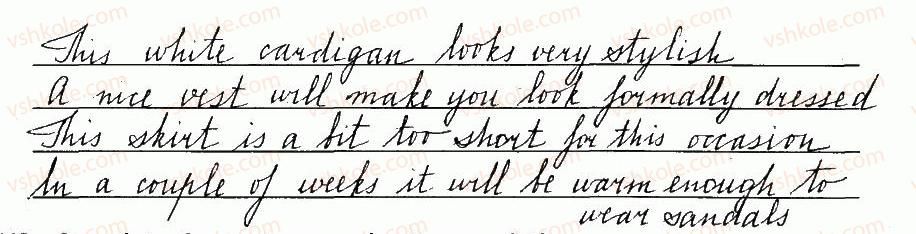 This white cardigan looks very stylish
A nice vest will make you look formally dressed
This skirt is a bit too short for this occasion
In a couple of weeks it will be warm enough to
wear sandals